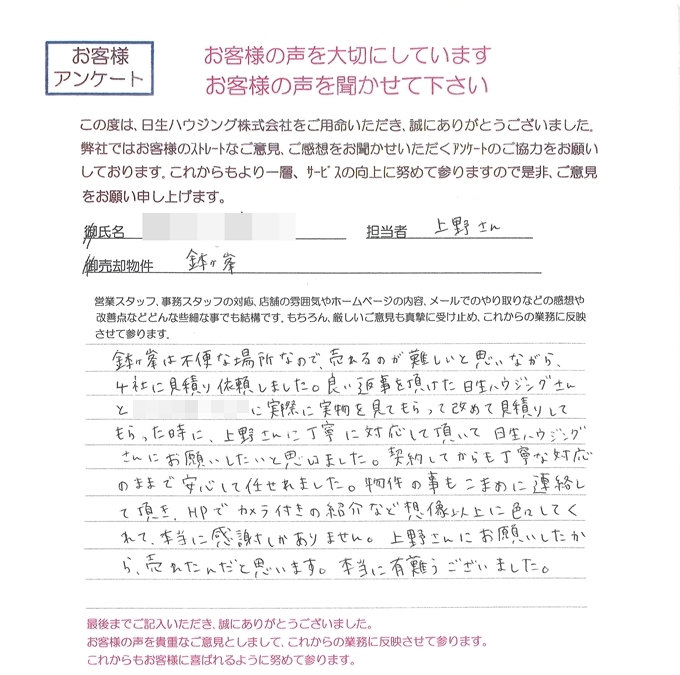 お客様
アンケート
お客様の声を大切にしています
お客様の声を聞かせて下さい
この度は、日生ハウジング株式会社をご用命いただき、誠にありがとうございました。
弊社ではお客様のストレートなご意見、ご感想をお聞かせいただくアンケートのご協力をお願い
しております。これからもより一層、サービスの向上に努めて参りますので是非、ご意見
をお願い申し上げます。
御氏名
担当者 上野さん
御売却物件 鉢ヶ峯
営業スタッフ、事務スタッフの対応、店舗の雰囲気やホームページの内容、メールでのやり取りなどの感想や
改善点などどんな些細な事でも結構です。もちろん、厳しいご意見も真摯に受け止め、これからの業務に反映
させて参ります。
鉢ヶ峯は不便な場所なので、売れるのが難しいと思いながら、
4社に見積り依頼しました。良い返事を頂けた日生ハウジングさん
と に実際に実物を見てもらって改めて見積りして
もらった時に、上野さんに丁寧に対応して頂いて 日生ハウジング
さんにお願いしたいと思いました。契約してからも丁寧な対応
のままで安心して任せれました。物件の事もこまめに連絡し
て頂き、HPで カメラ付きの紹介など想像以上に色々してく
れて、本当に感謝しかありません。上野さんにお願いしたか
ら、売れたんだと思います。本当に有難うございました。
最後までご記入いただき、誠にありがとうございました。
お客様の声を貴重なご意見としまして、これからの業務に反映させて参ります。
これからもお客様に喜ばれるように努めて参ります。